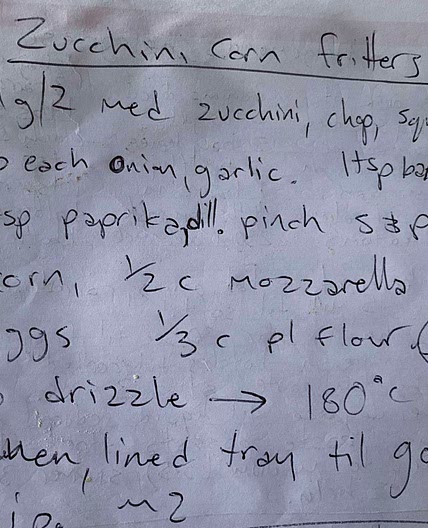 Zucchini Corn fritters
g/2 med zucchini, chop, squ
each onion, garlic. 1tsp ba
sp paprika, dill. pinch s & p
orn, 1/2 c mozzarella
ggs 1/3 c pl flour. (
drizzle → 180°c
lined tray til go